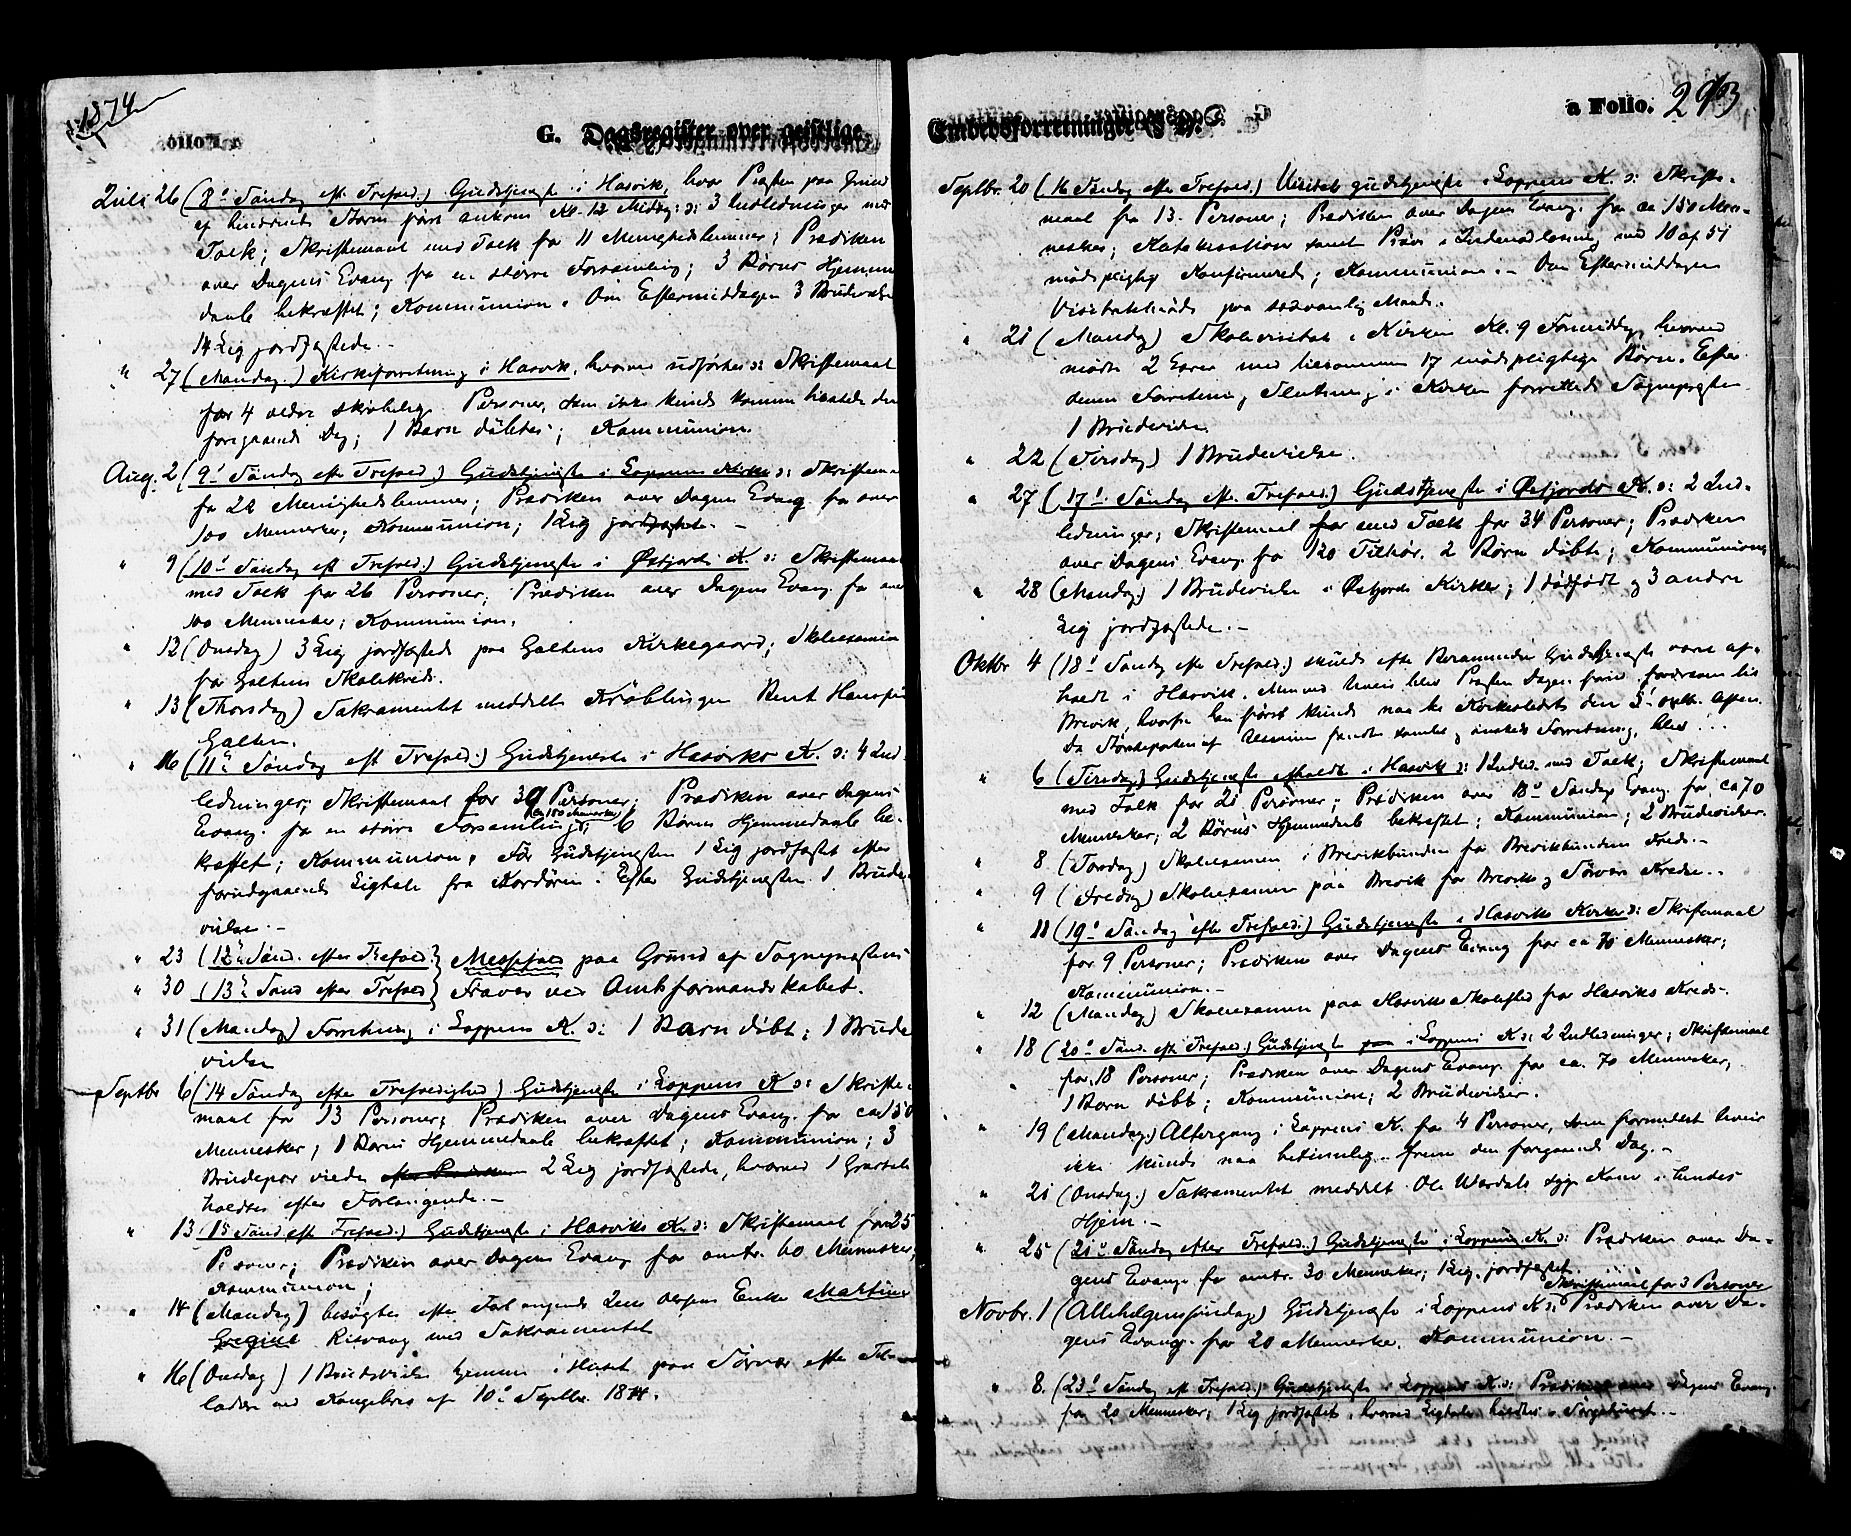 1874
a Folio. 293
G. Dagsregister over geistlige Embedsforretninger (§ 2).
Juli 26 (8de Søndag eft. Trefold.) Gudstjeneste i Hasvik, hvor Præsten paa Grund
af hindrende Storm først ankom Kl. 12 Middag: 3 Indledninger med
Tolk; Skriftemaal med Tolk for 11 Menighedslemmer; Prædiken
over Dagens Evang. for en større Forsamling; 3 Børns Hjemme
daab bekræftet; Kommunion. Om Eftermiddagen 3 Brudevielser
14 Lig jordfæstede. -
" 27 (Mandag.) Kirkeforretning i Hasvik, hvorved udførtes: Skriftemaal
for 4 ældre skrøbelige Personer, som ikke kunde komme tilstede den
foregaaende Dag; 1 Barn døbtes; Kommunion.
Aug. 2 (9de Søndag eft Trefold.) Gudstjeneste i Loppens Kirke: Skriftemaal
for 22 Menighedslemmer; Prædiken over Dagens Evang. for over
100 Mennesker, Kommunion; 1 Lig jordfæstet. -
" 9 (10de Søndag eft Trefold.) Gudstjeneste i Øxfjords K. o: Skriftemaal
med Tolk for 26 Personer; Prædiken over Dagens Evang. for over
100 Mennesker; Kommunion.
" 12 (Onsdag) 3 Lig jordfæstede paa Galtens Kirkegaard; Skoleexamen
for Galtens Skolekreds.
" 13 (Thorsdag) Sakramentet meddelt Krøblingen Bent Hans
Galten.
" 16 (11te Søndag eft Trefold.) Gudstjeneste i Hasviks K. o: 4 Ind
ledninger; Skriftemaal for 39 Personer; Prædiken over Dagens
Evang. for en større Forsamling (ca 180 Mennesker); 6 Børns Hjemmedaab be-
kræftet; Kommunion. Før Gudstjenesten 1 Lig jordfæstet efter
forudgaaende Ligtale fra Kordøren. Efter Gudstjenesten 1 Brude
vielse. -
" 23 (12te Sønd. efter Trefold.) Messefald paa Grund af Sognepræstens
" 30 (13de Sønd efter Trefold) Fravær ved Amtsformandskabet.
" 31 (Mandag) Forretning i Loppens K. o: 1 Barn døbt; 1 Brude
vielse
Septbr 6 (14 Søndag efter Trefoldighed) Gudstjeneste i Loppens K o: Skrifte-
maal for 13 Personer; Prædiken over Dagens Evang. for ca 150
Mennesker; 1 Barns Hjemmedaab bekræftet; Kommunion; 3
Brudepar viede 2 Lig jordfæstede, hvorved 1 Gravtale
holdtes efter Forlangende. -
" 13 (15 Sønd. eft Trefold.) Gudstjeneste i Hasviks K. o: Skriftemaal for 25
Personer; Prædiken over Dagens Evang for omtr. 60 Mennesker,
Kommunion;
" 14 (Mandag) besøgtes efter Forlangende Enke Martine
Ritvang med Sakramentet
" 16 (Onsdag) 1 Brudevielse hjemme i Huset paa Sørvær efter Til-
ladelse ved Kongebrev af 10de Septbr. 1874.
Septbr. 20 (16 Søndag efter Trefold.) Visitats gudstjeneste i Loppens K. o: Skrifte-
maal for 13 Personer; Prædiken over Dagens Evang. for ca 150 Men-
nesker; Katekisation samt Prøve i Indenadlæsning med 10 af 51
mødepligtige Konfirmerede; Kommunion. - Om Eftermiddagen
Visitatsmøde paa sædvanlig Maade.
" 21 (Mandag) Skolevisitats i Kirken Kl. 9 Formiddag, hvorved
mødte 2 Lærer med tilsammen 17 mødepligtige Børn. Efter
denne Forretnings Slutning i Kirken forrettede Sognepræsten
1 Brudevielse.
" 22 (Tirsdag) 1 Brudevielse.
" 27 (17de Søndag eft. Trefold.) Gudstjeneste i Øxfjords K. o: 2 Ind-
ledninger; Skriftemaal for med Tolk for 34 Personer; Prædiken
over Dagens Evang. for 120 Tilhør. 2 Børn døbt; Kommunion
" 28 (Mandag.) 1 Brudevielse i Øxfjords Kirke; 1 dødfødt og 3 andre
Lig jordfæstede. -
Oktbr 4 (18de Søndag efter Trefold.) skulde efter Berammelse Gudstjeneste være af-
holdt i Hasvik. Men ved Uveir blev Præsten Dagen forud til
Brevik, hvorfra han først kunde naa til Kirkestedet den 5te Aften.
Da Størsteparten af Almuen fandtes samlet og ønskede Forretning, blev
" 6 (Tirsdag) Gudstjeneste afholdt i Hasvik o: 1 Indled. med Tolk; Skriftemaal
med Tolk for 21 Personer; Prædiken over 18de Søndags Evang. for ca 70
Mennesker; 2 Børns Hjemmedaab bekræftet; Kommunion; 2 Brudevielser.
" 8 (Torsdag) Skoleexamen i Brevikbunden for Brevikbundens Kreds. -
" 9 (Fredag) Skoleexamen paa Brevik for Brevik og Sørvær Kredse. -
" 11 (19de Søndag efter Trefold.) Gudstjeneste i Hasviks Kirke: Skriftemaal
for 9 Personer; Prædiken over Dagens Evang for ca 70 Mennesker;
Kommunion. -
" 12 (Mandag) Skoleexamen paa Hasviks Skolested for Hasviks Kreds. -
" 18 (20de Sønd. eft Trefold.) Gudstjeneste i Loppens K o: 2 Indledninger; Skriftemaal
for 18 Personer; Prædiken over Dagens Evang. for ca. 70 Mennesker,
1 Barn døbt; Kommunion; 2 Brudevielser.
" 19 (Mandag.) Altergang i Loppens K. for 4 Personer, som formedelst Uveir
ikke kunde naa betimelig frem den foregaaende Dag. -
" 21 (Onsdag.) Sakramentet meddelt Ole Werdals syge Kone i hendes
Hjem. -
" 25 (21de Søndag efter Trefold.) Gudstjeneste i Loppens K. o: Prædiken over Da-
gens Evang. for omtr. 30 Mennesker; 1 Lig jordfæstet.
Skriftemaal for 3 Personer
Novbr. 1 (Allehelgenssøndag) Gudstjeneste i Loppens K o: Prædiken over Da-
gens Evang. for 20 Mennesker. Kommunion. -
" 8. (23de Søndag eft Trefold.) Gudstjeneste i Loppens K. o: Prædiken over Dagens Evang.
for 20 Mennesker; 1 Lig jordfæstet, hvorved Ligtale holdtes i Sørgehuset. -